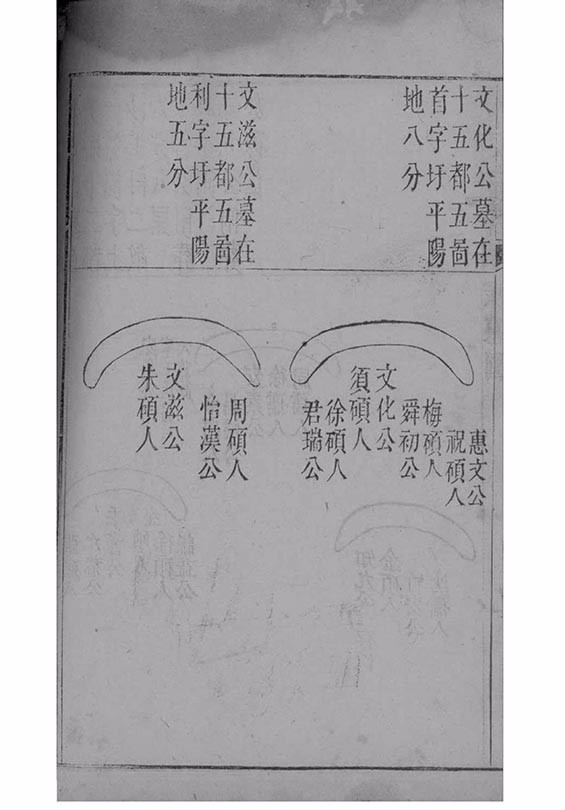 文化公墓在
十五都五啚
首字圩平陽
地八分
文滋公墓在
十五都五啚
利字圩平陽
地五分
惠文公
祝碩人
梅碩人
舜初公
文化公
須碩人
徐碩人
君瑞公
周碩人
怡漢公
文滋公
朱碩人